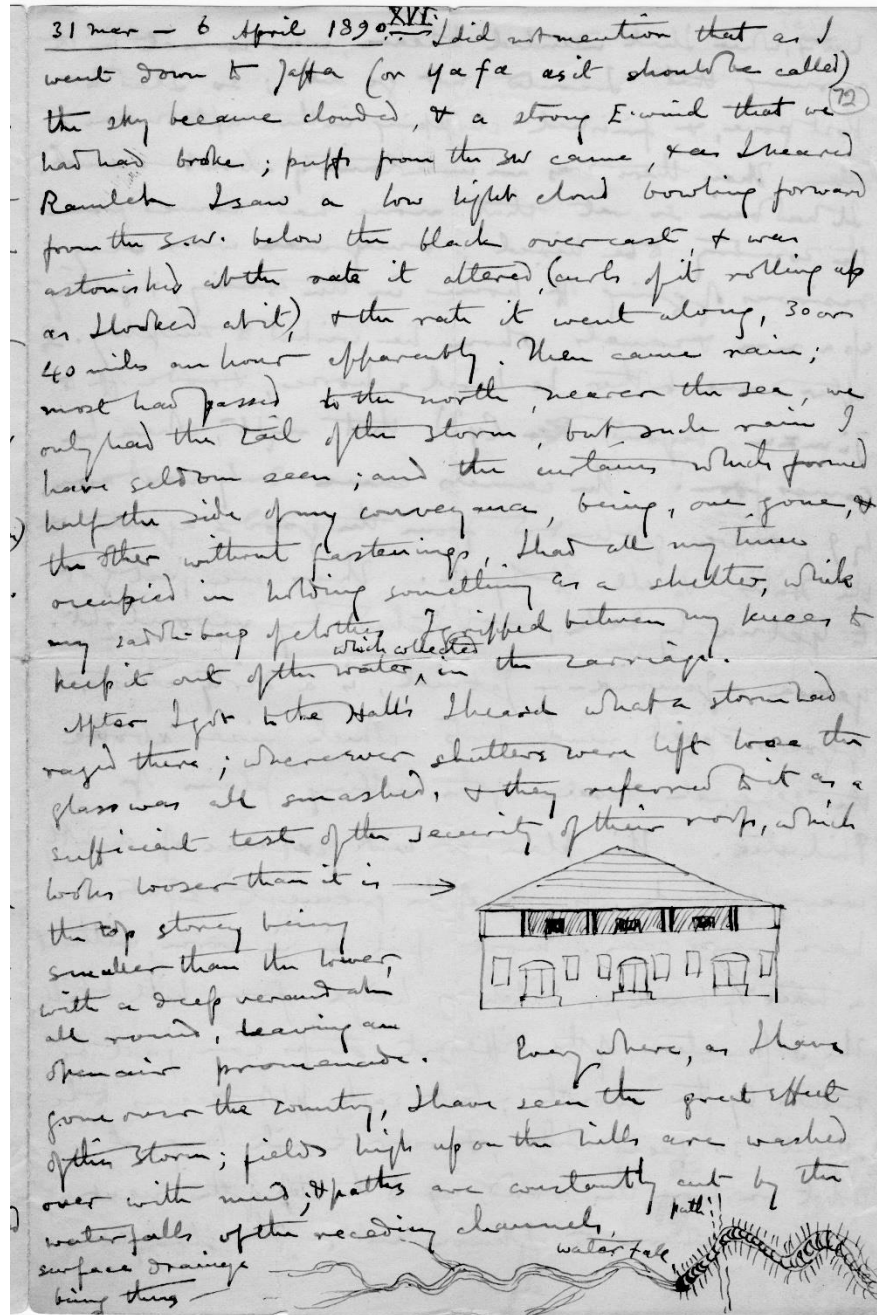 31 Mar – 6 April 1890. XVI. I did not mention that as I
went down to Jaffa (or Yafa as it should be called)
72
the sky became clouded, & a strong E. wind that we
had had broke; puffs from the SW came, & as I neared
Ramleh I saw a low light cloud bowling forward
from the S.W. below the black overcast, & was
astonished at the rate it altered, (curls of it rolling up
as I looked at it), & the rate it went along, 30 or
40 miles an hour apparently. Then came rain;
most had passed to the north, nearer the sea, we
only had the tail of the storm; but such rain I
have seldom seen; and the curtains which formed
half the side of my conveyance, being, one gone, &
the other without fastenings, I had all my time
occupied in holding something as a shelter, while
my saddle-bag of clothes I gripped between my knees to
keep it out of the water, which collected in the carriage.
After I got to the Hall's I heard what a storm had
raged there; whereever shutters were left loose the
glass was all smashed, & they referred to it as a
sufficient test of the security of their roofs, which
looks looser than it is →
the top storey being
smaller than the lower,
with a deep verandah
all round, leaving an
open air promenade. Everywhere, as I have
gone over the country, I have seen the great effect
of this storm; fields high up on the hills are washed
over with mud; & paths are constantly cut by the
waterfalls of the receding channels,
path
waterfall
surface drainage
being thus —